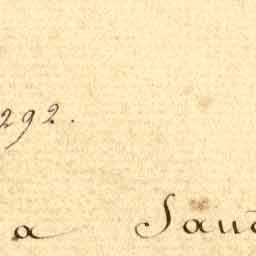 292.
a Sau